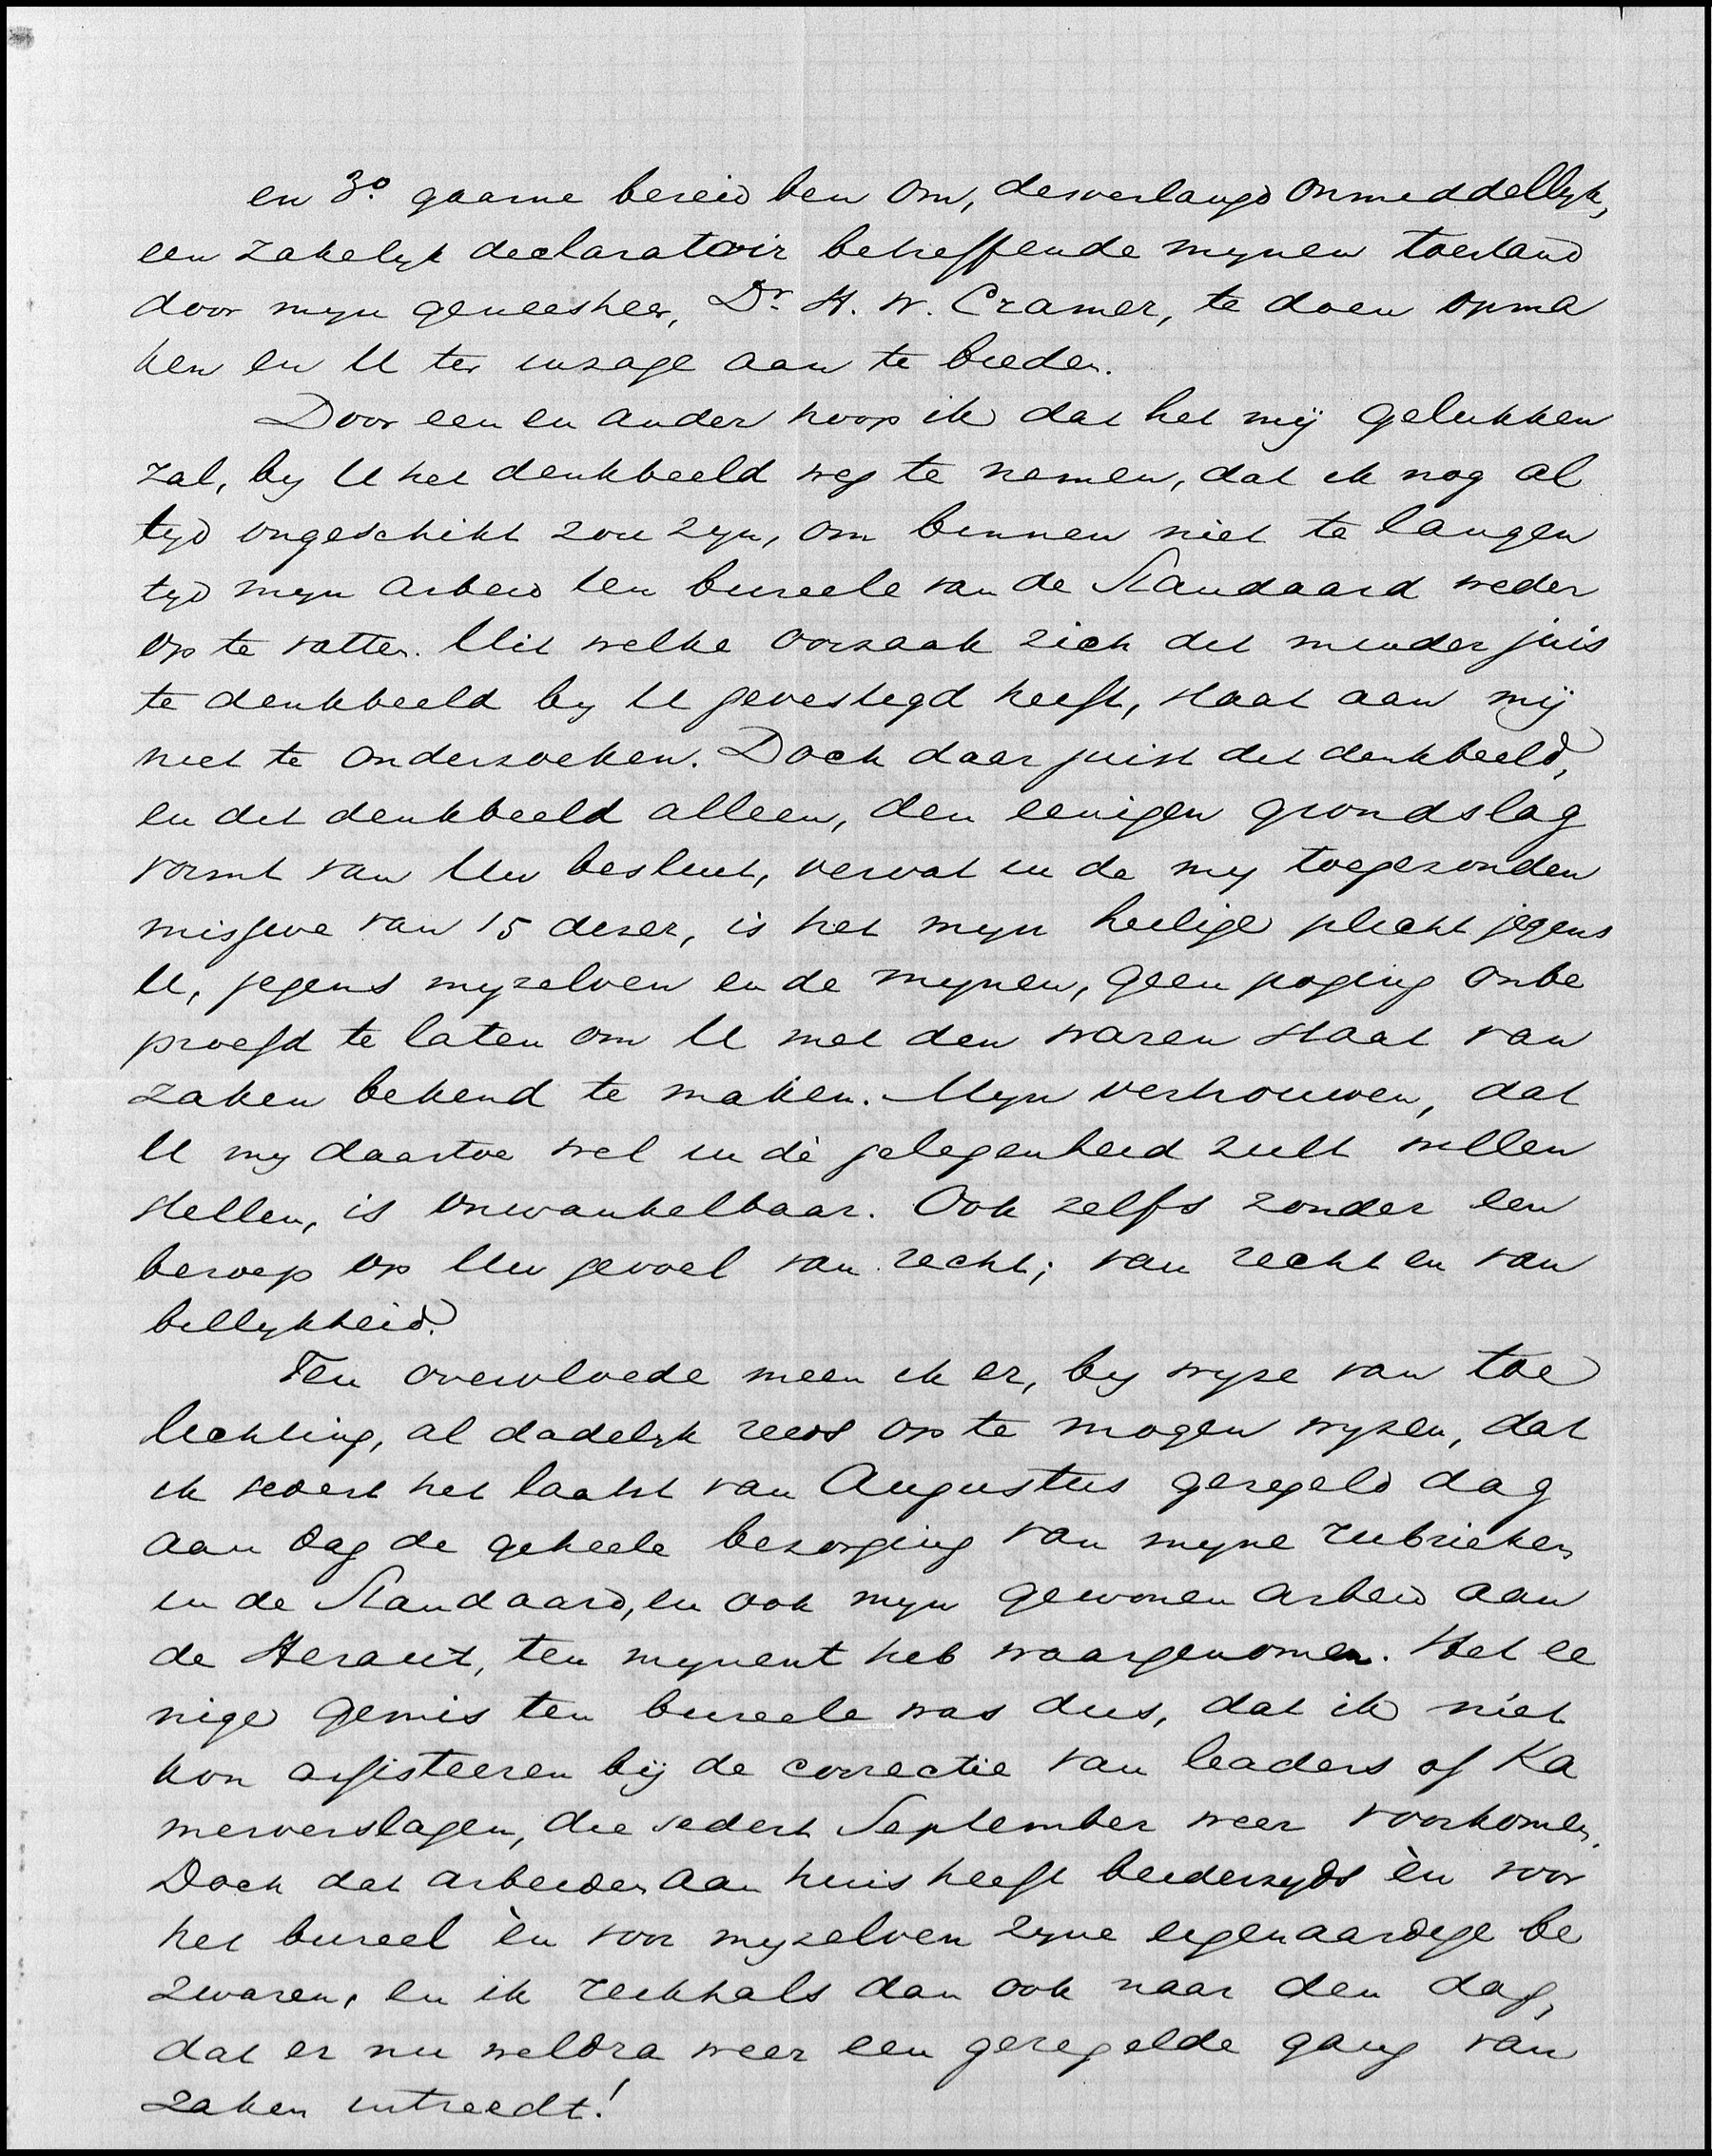 en 3º gaarne bereid ben om, desverlangd onmiddellyk,
een zakelyk declaratoir betreffende mynen toestand
door myn geneesheer, Dr. H. W. Cramer, te doen opma
ken en U ter inzage aan te bieden.
Door een en ander hoop ik dat het mij gelukken
zal, by U het denkbeeld weg te nemen, dat ik nog al
tyd ongeschikt zou zyn, om binnen niet te langen
tyd myn arbeid ten bureele van de Standaard weder
op te vatten. Uit welke oorzaak zich dit minder juis
te denkbeeld by U gevestigd heeft, staat aan mij
niet te onderzoeken. Doch daar juist dit denkbeeld,
en dit denkbeeld alleen, den eenigen grondslag
vormt van Uw besluit, vervat in de my toegezonden
missive van 15 dezer, is het myn heilige plicht jegens
U, jegens myzelven en de mynen, geen poging onbe
proefd te laten om U met den waren staat van
zaken bekend te maken. Myn vertrouwen, dat
U my daartoe wel in de gelegenheid zult willen
stellen, is onwankelbaar. Ook zelfs zonder een
beroep op Uw gevoel van recht; van recht en van
billykheid.
Ten overvloede meen ik er, by wyze van toe
lichting, al dadelyk reeds op te mogen wyzen, dat
ik sedert het laatst van Augustus geregeld dag
aan dag de geheele bezorging van myne rubrieken
in de Standaard, en ook myn gewonen arbeid aan
de Heraut, ten mynent heb waargenomen. Het ee
nige gemis ten bureele was dus, dat ik niet
kon assisteeren bij de correctie van leaders of Ka
merverslagen, die sedert September weer voorkomen.
Doch dat arbeiden aan huis heeft beiderzyds èn voor
het bureel èn voor myzelven zyne eigenaardige be
zwaren, en ik reikhals dan ook naar den dag,
dat er nu weldra weer een geregelde gang van
zaken intreedt!